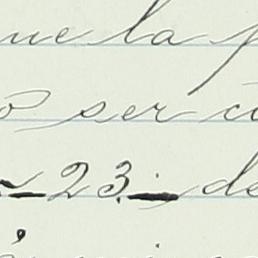 ue la p
o ser co
23. de